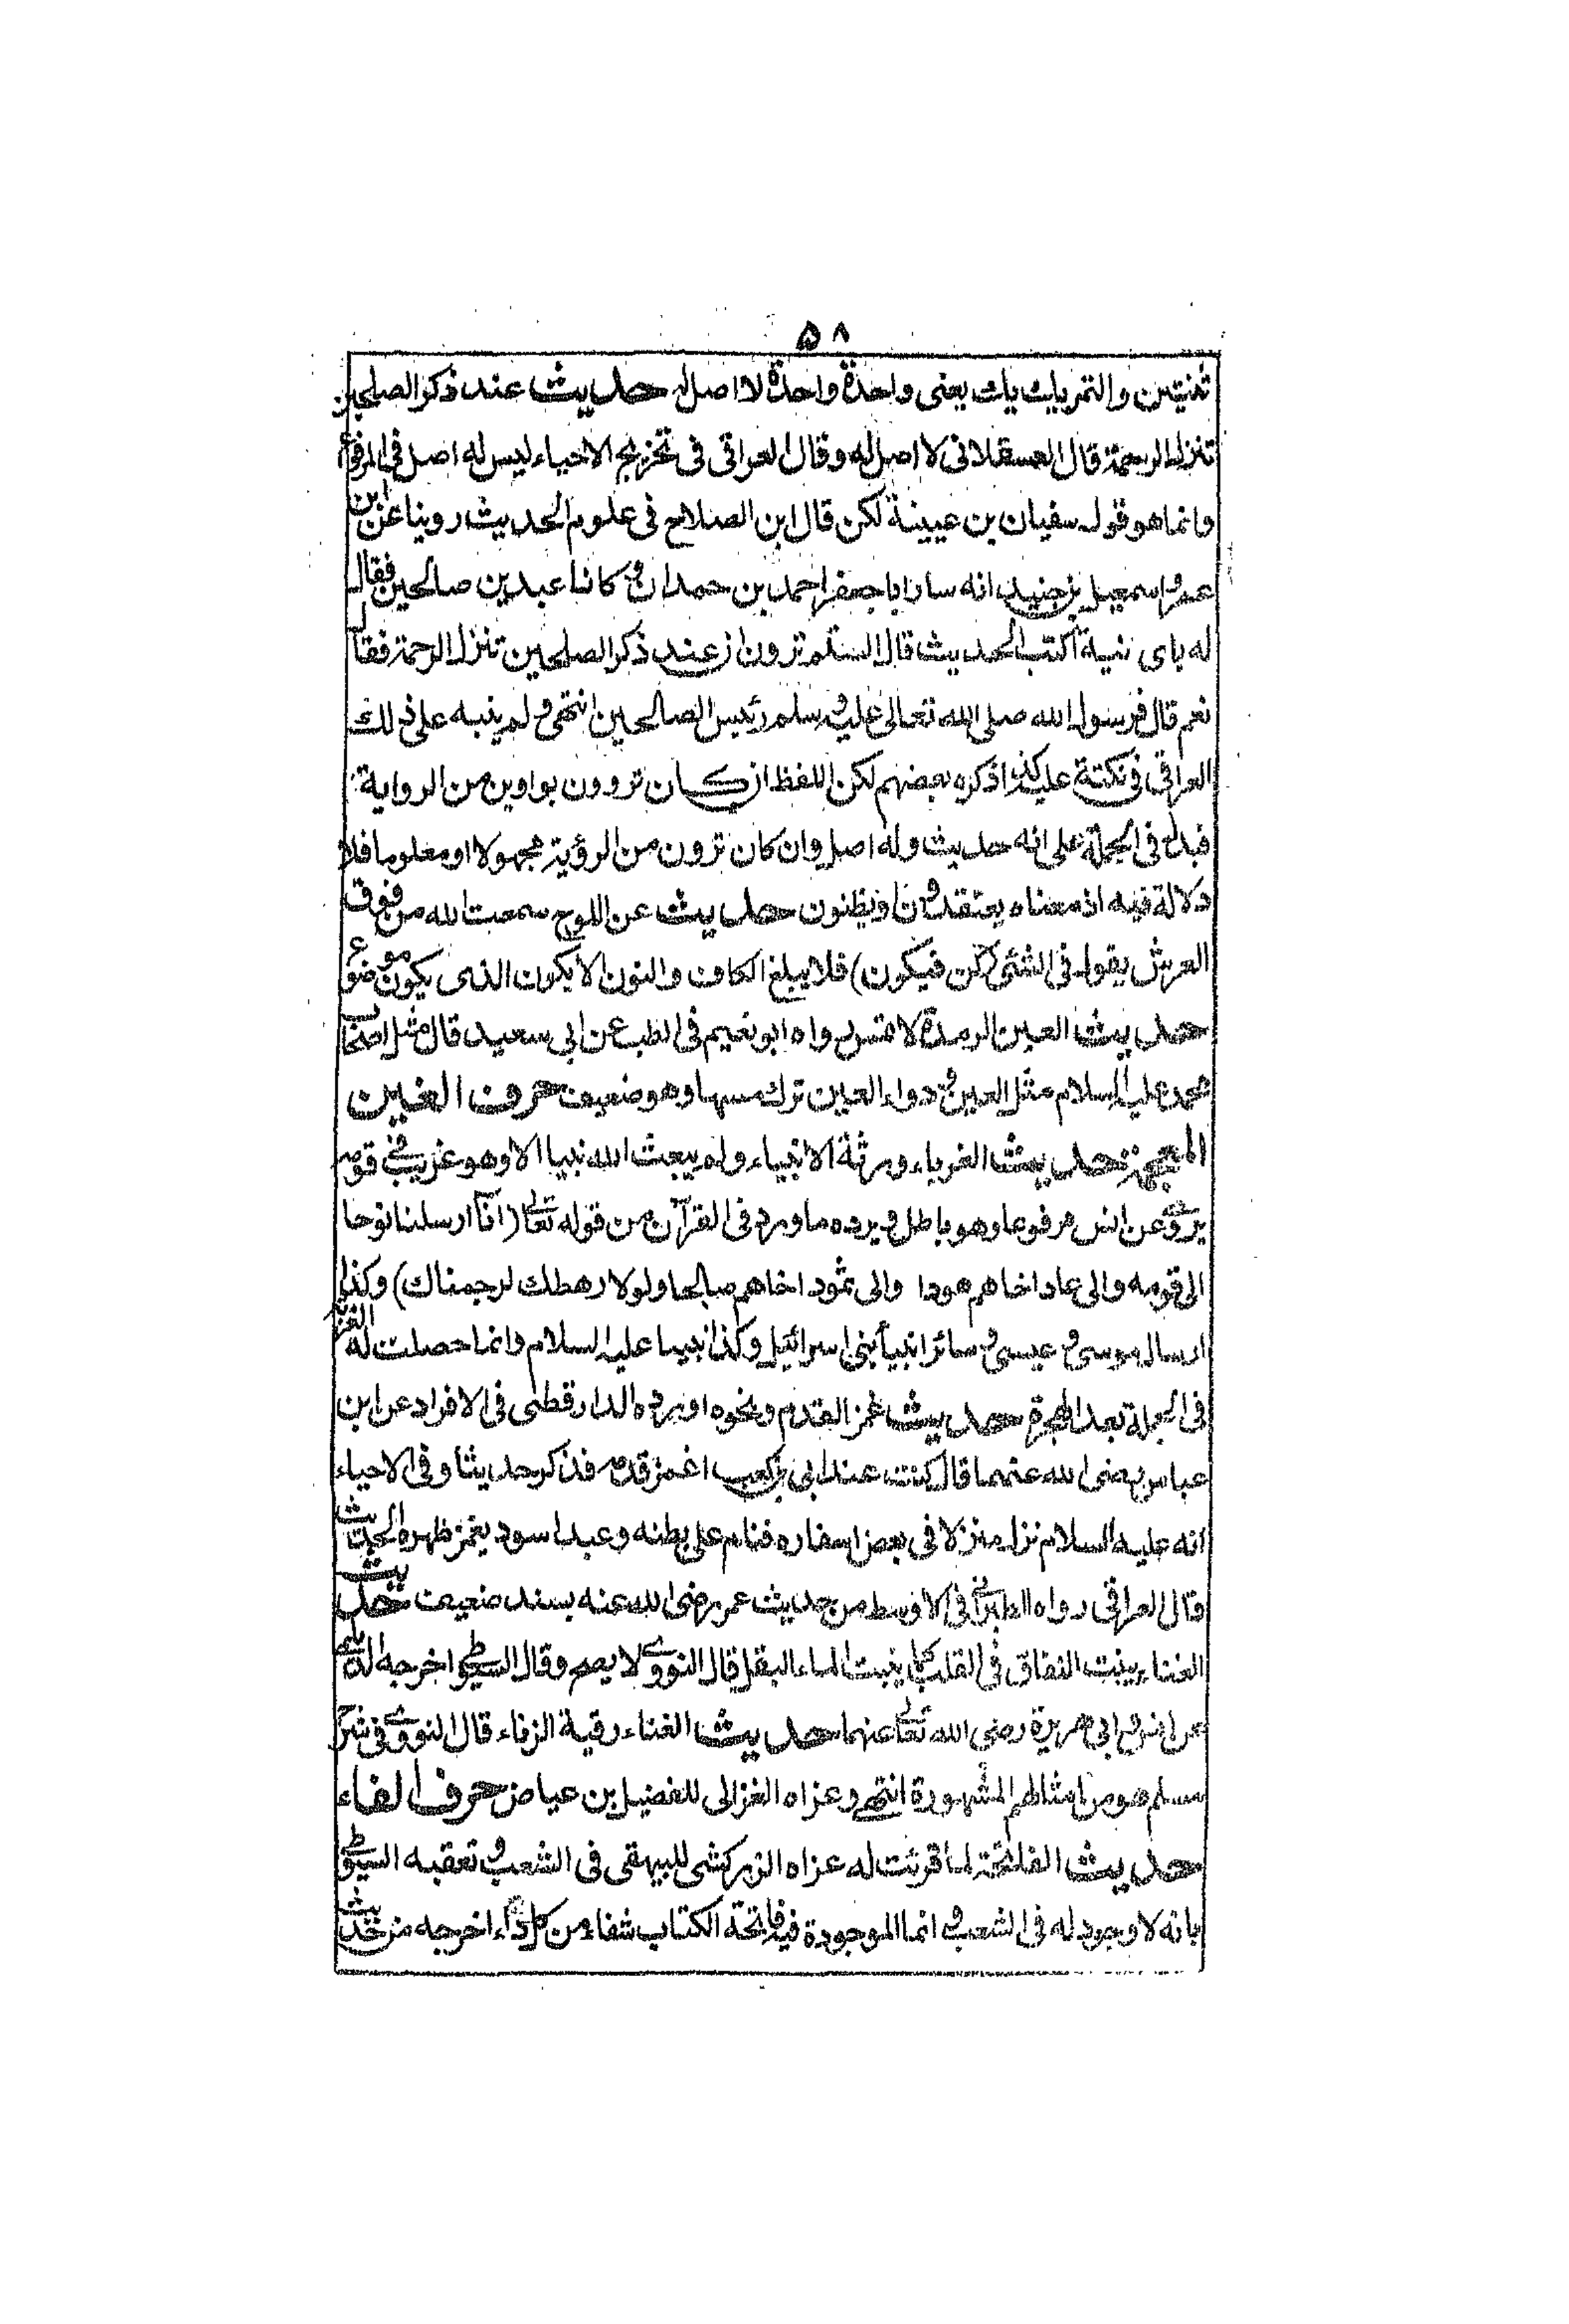 ۵۸
ثنتين والتمر يك يك يعنى واحدة واحدة لا اصل له حديث عند ذكر الصلحين
تنزل الرحمة قال العسقلانى لا اصل له وقال العراقى فى تخريج الاحياء ليس له اصل فى المرفوع
وانما هو قول سفيان بن عيينة لكن قال ابن الصلاح فى علوم الحديث روينا عن ابن
عمرو اسمعيل بن جنيد انه سال ابا جعفر احمد بن حمدان وكانا عبدين صالحين فقال
له باى نية اكتب الحديث قال الستم ترون ان عند ذكر الصلحين تنزل الرحمة فقال
نعم قال فرسول الله صلى الله تعالى عليه وسلم رئيس الصالحين انتهى ولم ينبه على ذلك
العراقى فى نكتة عليه كذا ذكره بعضهم لكن اللفظ ان كان تروون بواوين من الرواية
فيدل فى الجملة على انه حديث وله اصل وان كان ترون من الرؤية مجهولا او معلوما فلا
دلالة فيه اذ معناه يعتقدون او يظنون حديث عن اللوح سمعت الله من فوق
العرش يقول فى الشئ (كن فيكون) فلا يبلغ الكاف والنون الا يكون الذى يكون موضوع
حديث العين الرمدة لا تمس رواه ابو نعيم فى الطب عن ابى سعيد قال مثل اصحاب
محمد عليه السلام مثل العين ودواء العين ترك مسها وهو ضعيف حرف الغين
المعجمة حديث الغرباء ورثة الانبياء ولم يبعث الله نبيا الا وهو غريب فى قومه
يروى عن انس مرفوعا وهو باطل ويرده ما ورد فى القرآن من قوله تعالى (انا ارسلنا نوحا
الى قومه والى عاد اخاهم هودا والى ثمود اخاهم صالحا ولولا رهطك لرجمناك) وكذا
ارسال موسى وعيسى وسائر انبياء بنى اسرائيل وكذا نبينا عليه السلام وانما حصلت له الغربة
فى الجملة بعد الهجرة حديث غمز القدم ونحوه اورده الدارقطنى فى الافراد عن ابن
عباس رضى الله عنهما قال كنت عند ابى بن كعب اغمز قدمه فذكر حديثا وفى الاحياء
انه عليه السلام نزل منزلا فى بعض اسفاره فنام على بطنه وعبد اسود يغمز ظهره الحديث
قال العراقى رواه الطبرانى فى الاوسط من حديث عمر رضى الله عنه بسند ضعيف حديث
الغناء ينبت النفاق فى القلب كما ينبت الماء البقل قال النووى لا يصح وقال السيوطى اخرجه الديلمى
عن انس وابى هريرة رضى الله تعالى عنهما حديث الغناء رقية الزناء قال النووى فى شرح
مسلم هو من امثالهم المشهورة انتهى وعزاه الغزالى للفضيل بن عياض حرف الفاء
حديث الفاتحة لما قرئت له عزاه الزركشى للبيهقى فى الشعب وتعقبه السيوطى
بانه لا وجود له فى الشعب وانما الموجودة فيه فاتحة الكتاب شفاء من كل داء اخرجه من حديث